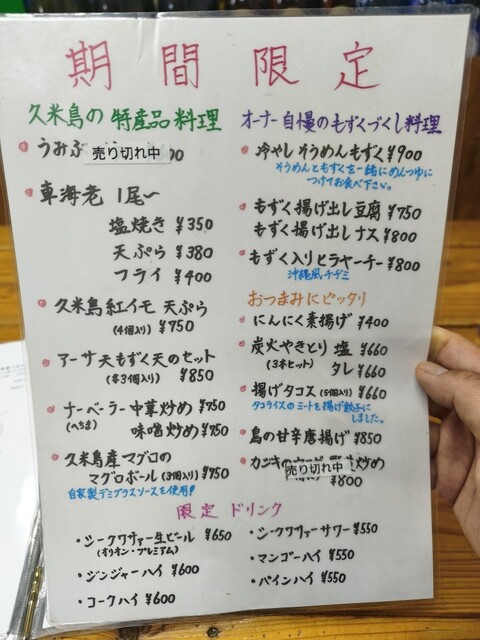 期間限定
久米島の特産品料理
うみぶ 売り切れ中 00
車海老 1尾〜
塩焼き ¥350
天ぷら ¥380
フライ ¥400
久米島紅イモ 天ぷら
(4個入り) ¥750
アーサ天もずく天のセット
(各3個入り) ¥850
ナーベーラー中華炒め ¥750
(へちま) 味噌炒め ¥750
久米島産マグロの
マグロボール (3個入り) ¥750
自家製デミグラスソースを使用!
オーナー自慢のもずくづくし料理
冷やしそうめんもずく ¥900
そうめんともずくを一緒にめんつゆに
つけてお食べ下さい。
もずく揚げ出し豆腐 ¥750
もずく揚げ出しナス ¥800
もずく入りヒラヤーチー ¥800
沖縄風チヂミ
おつまみにピッタリ
にんにく素揚げ ¥400
炭火やきとり 塩 ¥660
(3本セット) タレ ¥660
揚げタコス (5個入り) ¥660
タコライスのミートを揚げ餃子に
しました。
鳥の甘辛唐揚げ ¥850
カジキの 炒め
売り切れ中
¥800
限定ドリンク
・シークワサァー生ビール ¥650
(オリオン・プレミアム)
・ジンジャーハイ ¥600
・コークハイ ¥600
・シークワサァーサワー ¥550
・マンゴーハイ ¥550
・パインハイ ¥550